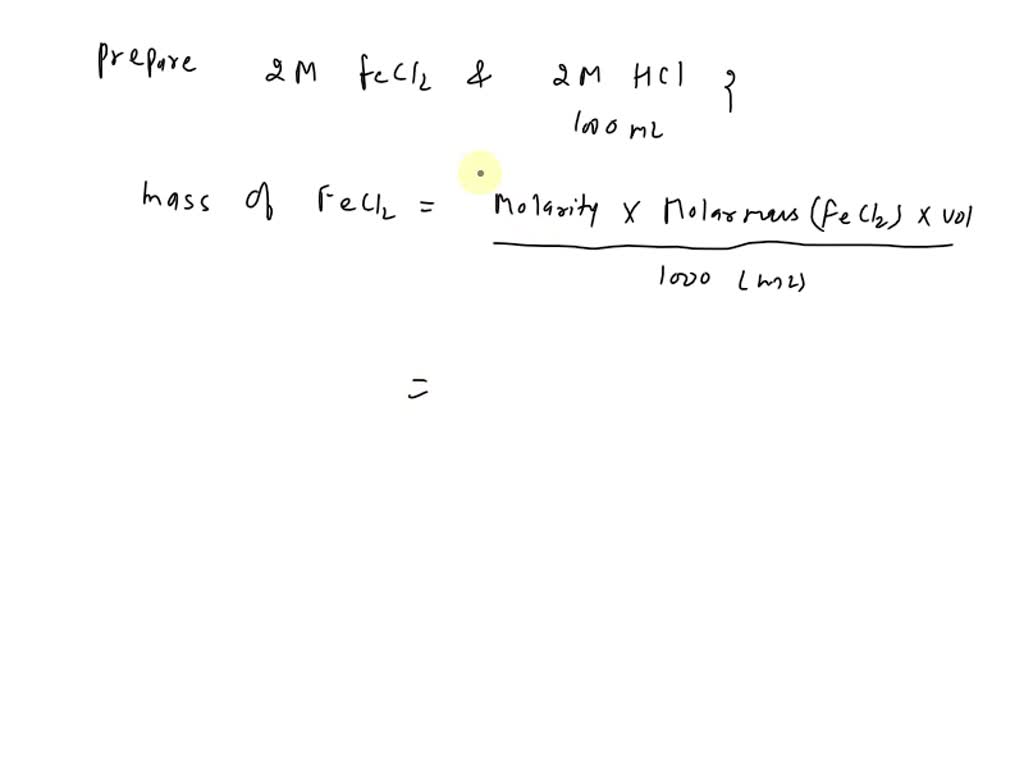 Prepare 2M FeCl₂ & 2M HCl }
1000 mL
Mass of FeCl₂ = Molarity X Molarmass (FeCl₂) X vol
1000 (mL)
=